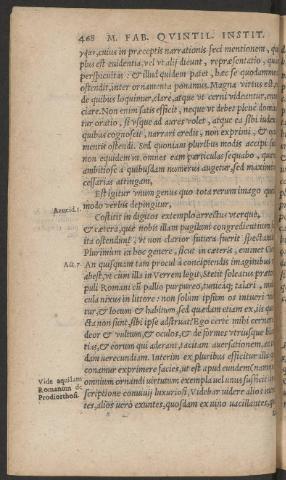 468 M. FAB. QVINTIL. INSTIT.
cuius in præceptis narrationis feci mentionem,
plus est euidentia, vel vt alij dicunt, repræsentatio, quàm
perspicuitas: & illud quidem patet, hæc se quodammodo
ostendit, inter ornamenta ponamus. Magna virtus est, res
de quibus loquimur, clarè, atque vt cerni videantur, enun-
ciare. Non enim satis efficit, neque vt debet plenè domina-
tur oratio, si vsque ad aures valet, atque ea sibi iudex de
quibus cognoscit, narrari credit, non exprimi, & oculis
mentis ostendi. Sed quoniam pluribus modis accipi solet,
non equidem in omnes eam particulas sequabo, quarum
ambitiosè à quibusdam numerus augetur, sed maximè ne-
cessarias attingam.
Est igitur vnum genus quo tota rerum imago quodam-
modo verbis depingitur,
Aeneid. 5. Costitit in digitos extemplo arrectus vterque,
& cætera, quæ nobis illam pugilum congredientium
ita ostendunt, vt non clarior futura fuerit spectantibus.
Plurimum in hoc genere, sicut in cæteris, eminet Cicero.
Act. 7. An quisquam tam procul à concipiendis imaginibus
abest, vt cùm illa in Verrem legit, Stetit soleatus prætor
puli Romani cū pallio purpureo, tunicáq; talari, mulier-
cula nixus in littore: non solùm ipsum os intueri videa-
tur, & locum & habitum, sed quædam etiam ex iis quæ
dicta non sunt, sibi ipse adstruat? Ego certè mihi cernere
deor & vultum, & oculos, & deformes vtriusque blandi-
tias, & eorum qui aderant, tacitam auersationem, ac timi-
dam verecundiam. Interim ex pluribus efficitur illa quam
conamur exprimere facies, vt est apud eundem (nam
Vide aquilam omnium ornandi virtutum exempla vel vnus sufficit)
Romanum de scriptione conuiuij luxuriosi, Videbar videre alios intran-
Prodiorthosi. tes, alios verò exeuntes, quosdam ex vino vacillantes,